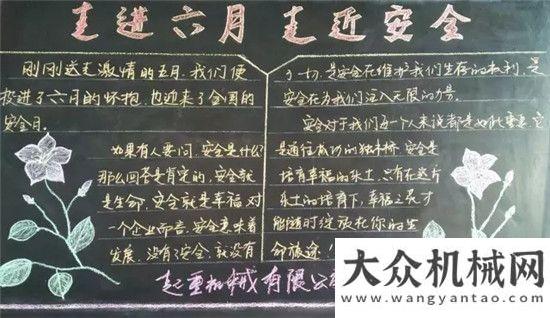 走进六月 走近安全
刚刚送走激情的五月，我们便
投进了六月的怀抱，也迎来了全国的
安全日。
如果有人要问，安全是什么？
那么回答是肯定的，安全就
是生命，安全就是幸福，对
一个企业而言，安全意味着
发展，没有安全，就没有
一切，是安全在维护我们生存的权利，是
安全在为我们注入无限的力量。
安全对于我们每一个人来说都是如此重要，它
是通往成功的独木桥，安全是
培育幸福的乐土，只有在这片
乐土的培育下，幸福之花才
能随时绽放在你的生
命旅途，
起重机械有限公
大众机械网
www.wangyantao.com